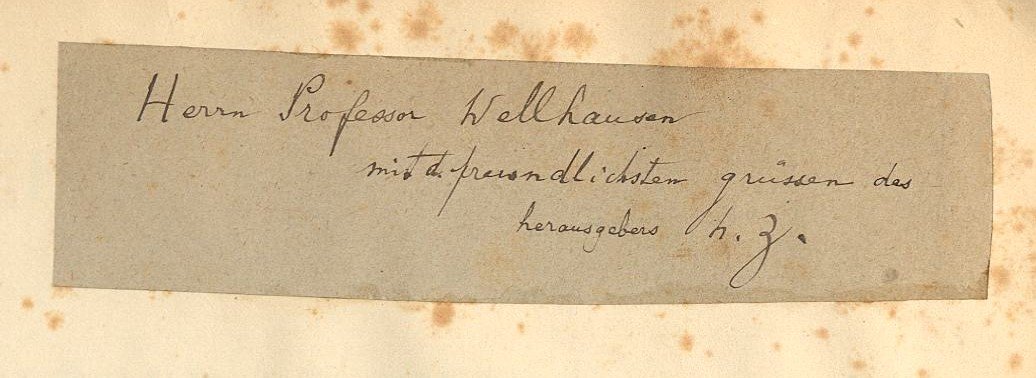 Herrn Professor Wellhausen
mit d. freundlichsten grüssen des
herausgebers h. Z.